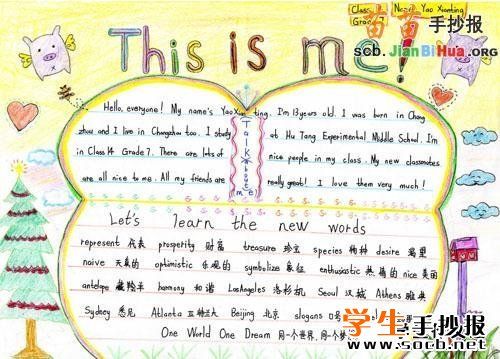 Class 14
Grade 7
Name: Yao Xianting
苗苗手抄报
scb.JianBiHua.org
This is me!
Hello, everyone! My name's Yao Xianting. I'm 13 years old. I was born in Chang
zhou and I live in Changzhou too. I study at Hu Tang Experimental Middle School. I'm
in Class 14 Grade 7. There are lots of nice people in my class. My new classmates
are all nice to me. All my friends are really great! I love them very much!
Talk About me
Let's learn the new words
represent 代表 prosperity 财富 treasure 珍宝 species 物种 desire 渴望
naive 天真的 optimistic 乐观的 symbolize 象征 enthusiastic 热情的 nice 美丽
antelope 藏羚羊 harmony 和谐 LosAngeles 洛杉矶 Seoul 汉城 Athens 雅典
Sydney 悉尼 Atlanta 亚特兰大 Beijing 北京 slogans 口号
One World One Dream 同一个世界, 同一个梦
学生手抄报
www.socb.net